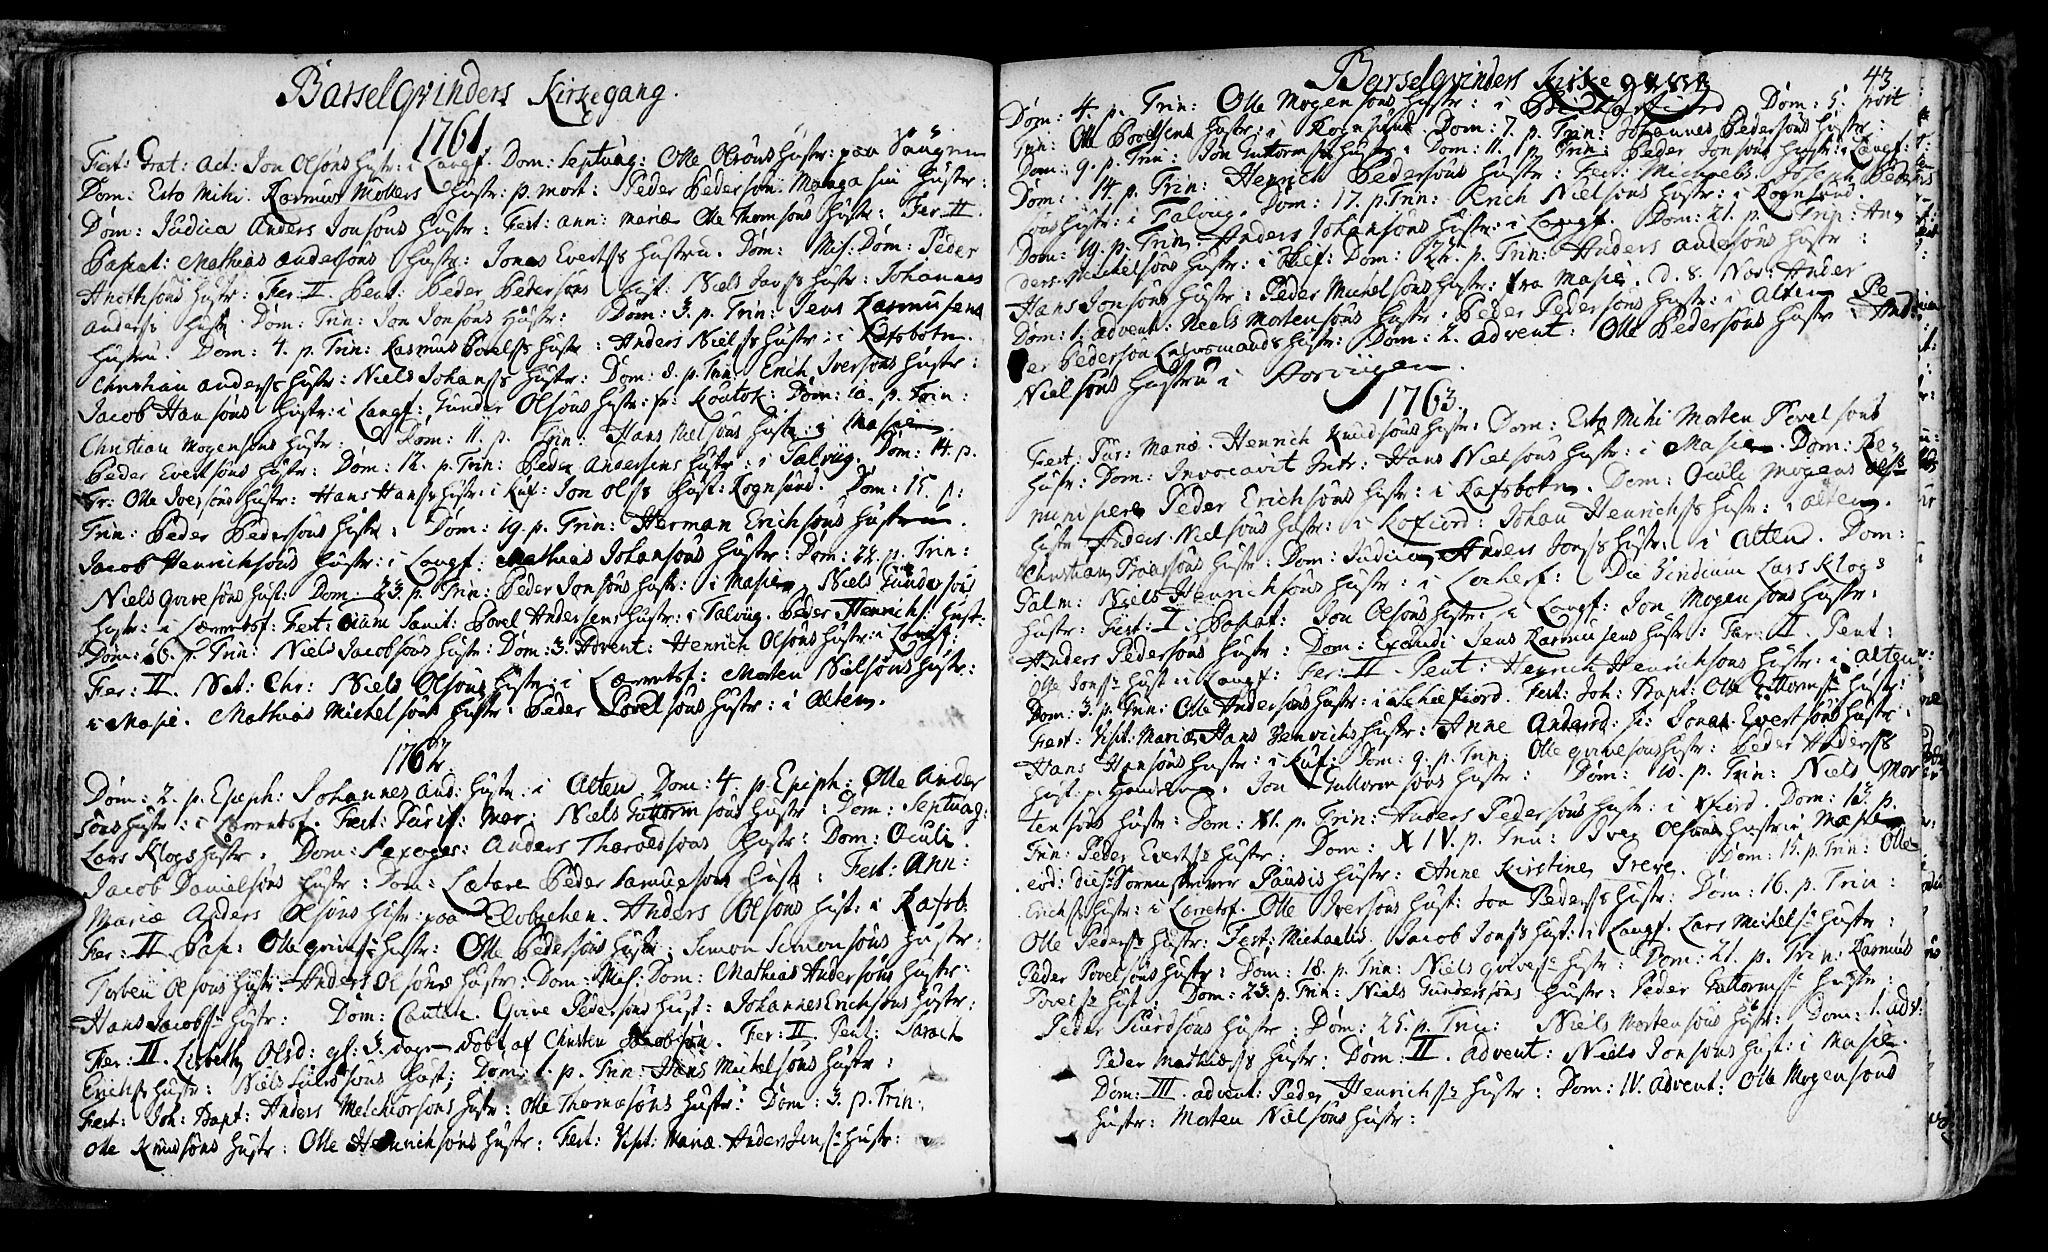 Barselqvinders Kirkegang.
1761
Fest: Grat: Act: Jon Olsöns Hustr: i Langf: Dom: Septuag: Olle Olsöns Hustr: paa
Dom: Esto Mihi. Rasmus Möllers Hustr: p. mort: Peder Pedersön Hustr:
Dom: Judica Anders Jonsöns Hustr: Fest: ann: Mariæ Olle Thomsöns Hustr: Fer: II.
Pasat: Mathias Andersöns Hustr: Jonas Evertss Hustru. Dom: Mis: Dom: Peder
Hustr: Fer: II. Pent: Peder Pedersöns Hust: Niels Hustr: Johannes
Anderss Hustr. Dom: Trin: Jon Jonsöns Hustr: Dom: 3. p. Trin: Jens Rasmusens
Hustru. Dom: 4. p. Trin: Rasmus Povelss Hustr: Anders Nielss Hustr: i Kafsbotn.
Christian Anderss Hustr: Niels Johanss Hustr: Dom: 8. p. Trin: Erich Iversöns Hustr:
Jacob Hansöns Hustr: i Langf: Gunder Olsöns Hustr: Dom: 10. p. Trin:
Christian Mogensöns Hustr: Dom: 11. p. Trin: Hans Nielsöns Hustr: i Masie.
Peder Evertsöns Hustr: Dom: 12. p. Trin: Peder Andersens Hustr: i Talvug. Dom: 14. p.
Tr: Olle Iversöns Hustr: Hans Hanss Hustr: i Kuf: Jon Olss Hust: Kognsund. Dom: 15. p:
Trin: Peder Pedersöns Hustr: Dom: 19. p. Trin: Herman Erichsöns Hustru.
Jacob Henrichsöns Hustr: i Langf: Mathias Johansöns Hustr: Dom: 22. p. Trin:
Niels Qvivesöns Hust: Dom: 23. p. Trin: Peder Jonsöns Hustr: i Masie, Niels Gundersöns
Hustr: i Lerretsf: Fest: Oium Sanct: Povel Andersens Hustr: i Talvug. Peder Henrichs: Hust:
Dom: 26. p. Trin: Niels Jacobsöns Hustr: Dom: 3. Advent: Henrich Olsöns Hustr: i Langf:
Fer: II. Nat: Chr: Niels Olsöns Hustr: i Lerretsf: Morten Nielsöns Hustr:
i Masie. Mathias Michelsöns Hustr: Peder Povelsöns Hustr: i Alten.
1762.
Dom: 2. p. Epiph: Johannes And: Hustr: i Alten. Dom: 4. p. Epiph: Olle Ander
söns Hustr: i Lerretsf. Fest: Purif: Mar: Niels Guttormsöns Hustr: Dom: Septuag:
Lars Klogs Hustr: Dom: Sexages: Anders Tharaldsöns Hustr: Dom: Oculi.
Jacob Danielsöns Hustr: Dom: Lætare Peder Samuelsöns Hustr: Fest: Ann:
Mariæ Anders Olsöns Hustr: paa Anders Olsöns Hust: i Kafsb:
Fer: II Pasc: Olle Hustr: Olle Pedersöns Hustr: Simon Simonsöns Hustr:
Torben Olsöns Hustr: Anders Olsöns Hustr: Dom: Mis: Dom: Mathias Andersöns Hustr:
Hans Jacobss Hustr: Dom: Cantate. Qvive Pedersöns Hust: Johannes Erichsöns Hustr:
Fer: II. Lisbeth Olsd: gl: 3. dage döbt af Christen Jacobsön. Fer: II. Pent: Sarach
Erichss Hustr: Niels Hust: Dom: 1. p. Trin: Hans Michelsöns Hustr:
Fest: Joh: Bapt: Anders Melchiorsöns Hustr: Olle Thomasöns Hustr: Dom: 3. p. Trin:
Olle Knudsöns Hustr: Olle Henrichsöns Hustr: Fest: Visit: Mariæ. Anders Jenss Hustr:
Barselqvinders Kirkegang
43
Dom: 4. p. Trin: Olle Mogensöns Hustr: i Dom: 5. post
Trin: Olle Povelsens Hustr: i Kognsund. Dom: 7. p. Trin: Johannes Pedersöns Hustr:
Dom: 9. p. Trin: Jon Guttormss Hustr: Dom: 11. p. Trin: Peder Jonsöns Hustr: i Langf:
Dom: 14. p. Trin: Henrich Pedersöns Hustr: Fest: Michaelis. Joseph Peders
söns Hustr: i Talvug. Dom: 17. p. Trin: Erich Nielsöns Hustr: i Kognsund
Dom: 19. p. Trin: Anders Johansöns Hustr: i Langf. Dom: 21. p. Trin: An
ders Michelsöns Hustr: i Dom: 22. p. Trin: Anders Andersöns Hustr:
Hans Jonsöns Hustr: Peder Michelsöns Hustr: fra Masie. d. 8. Nov: Ander
Dom: 1. advent: Neels Mortensöns Hustr: Peder Pedersöns Hustr: i Alten Pe
der Pedersön Hustr: Dom: 2. advent: Olle Pedersöns Hustr: And:
Nielsöns Hustru i
1763.
Fest: Pur: Mariæ. Henrich Knudsöns Hustr: Dom: Esto Mihi Morten Povelsöns
Hustr: Dom: Invocavit Intr: Hans Nielsöns Hustr: i Masie. Dom: Re
miniscere Peder Erichsöns Hustr: i Kafsbotn. Dom: Oculi Mogens Olss
Hustr: Anders Nielsöns Hustr: i Kofiord: Johan Henrichss Hustr: i Alten.
Christian Hustr: Dom: Judica, Anders Jonss Hustr: i Alten. Dom:
Palm: Niels Henrichsöns Hustr: i Die Viridium Lars Klogs
Hustr: Fest: I. Pascat: Jon Olsöns Hustr: i Langf: Jon Mogensöns Hustr:
Anders Pedersöns Hustr: Dom: Exaudi Jens Rasmusens Hustr: Fer: II. Pent:
Olle Jonss Hust: i Langf: Fer: III Pent: Henrich Henrichsöns Hustr: i Alten
Dom: 3. p. Trin: Olle Andersöns Hustr: i Fest: Joh: Bapt: Olle Guttormss Hustr:
Fest: Visit: Mariæ Hans Henrichs Hustr: Anne Andersd: Jonas Evertsöns Hustr:
Hans Hansöns Hustr: i Kuf: Dom: 9. p. Trin: Olle Qvivesöns Hustr: Peder Anderss
Hust: Jon Guttormsöns Hustr: Dom: 10. p. Trin: Niels Mor
tensöns Hustr: Dom: XI. p. Trin: Anders Pedersöns Hustr: i Dom: 13. p.
Trin: Peder Evertss Hustr: Dom: XIV. p. Trin: Iver Olsöns Hustr: i Masie
eod: die: Hustr: Anne Kirstine Greve. Dom: 15. p. Trin: Olle
Erichss Hustr: i Lerretsf. Olle Iversöns Hust: Jon Pederss Hustr: Dom: 16. p. Trin:
Olle Pederss Hustr: Fest: Michaelis. Jacob Jonss Hust: i Langf. Lars Michelss Hustr:
Peder Povelsöns Hustr: Dom: 18. p. Trin: Niels Qvivess Hustr: Dom: 21. p. Trin: Rasmus
Povelss Hust: Dom: 23. p. Trin: Niels Gundersöns Hustr: Peder Guttormss Hustr:
Peder Siurdsöns Hustr: Dom: 25. p. Trin: Niels Mortensöns Hustr: Dom: 1. adv:
Peder Mathiess Hustr: Dom: II. advent: Niels Jonsöns Hust: i Masie.
Dom: III. advent: Peder Henrichss Hustr: Dom: IV. advent: Olle Mogensöns
Hustr: Morten Nielsöns Hustr: